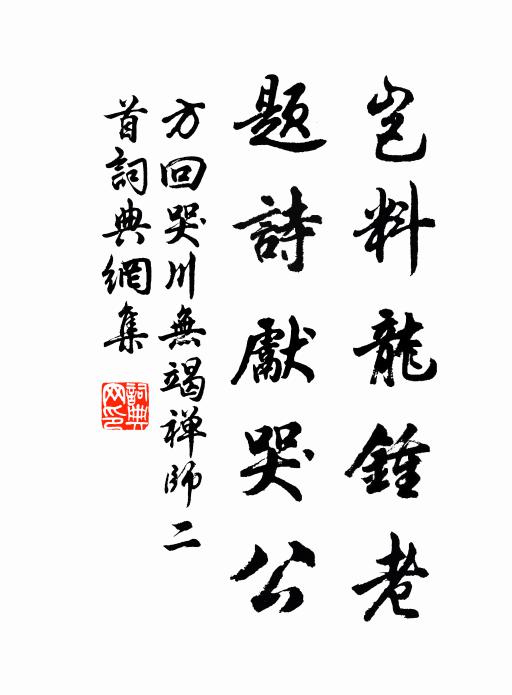 豈料龍鍾老
題詩獻哭公
方回哭川無竭禅師二
首詞典網集
詞典
网印